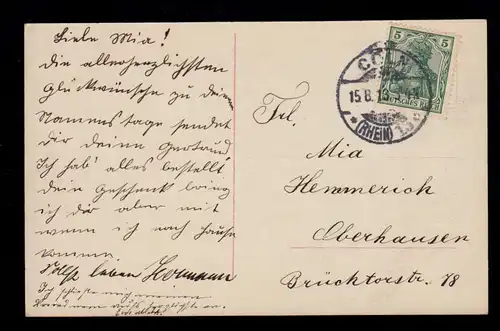 Liebe Mia!
Die allerherzlichsten
Glückwünsche zu deinem
Namenstage sendet
dir deine Gertrud
Ich hab' alles bestellt
dein Geschenk bring
ich dir aber mit
wenn ich nach Hause
komme.
leben Hermann
Ich schließe mich meinen
an.
5
CÖLN
15.8.
*(RHEIN)
Frl.
Mia
Hemmerich
Oberhausen
Brücktorstr. 78